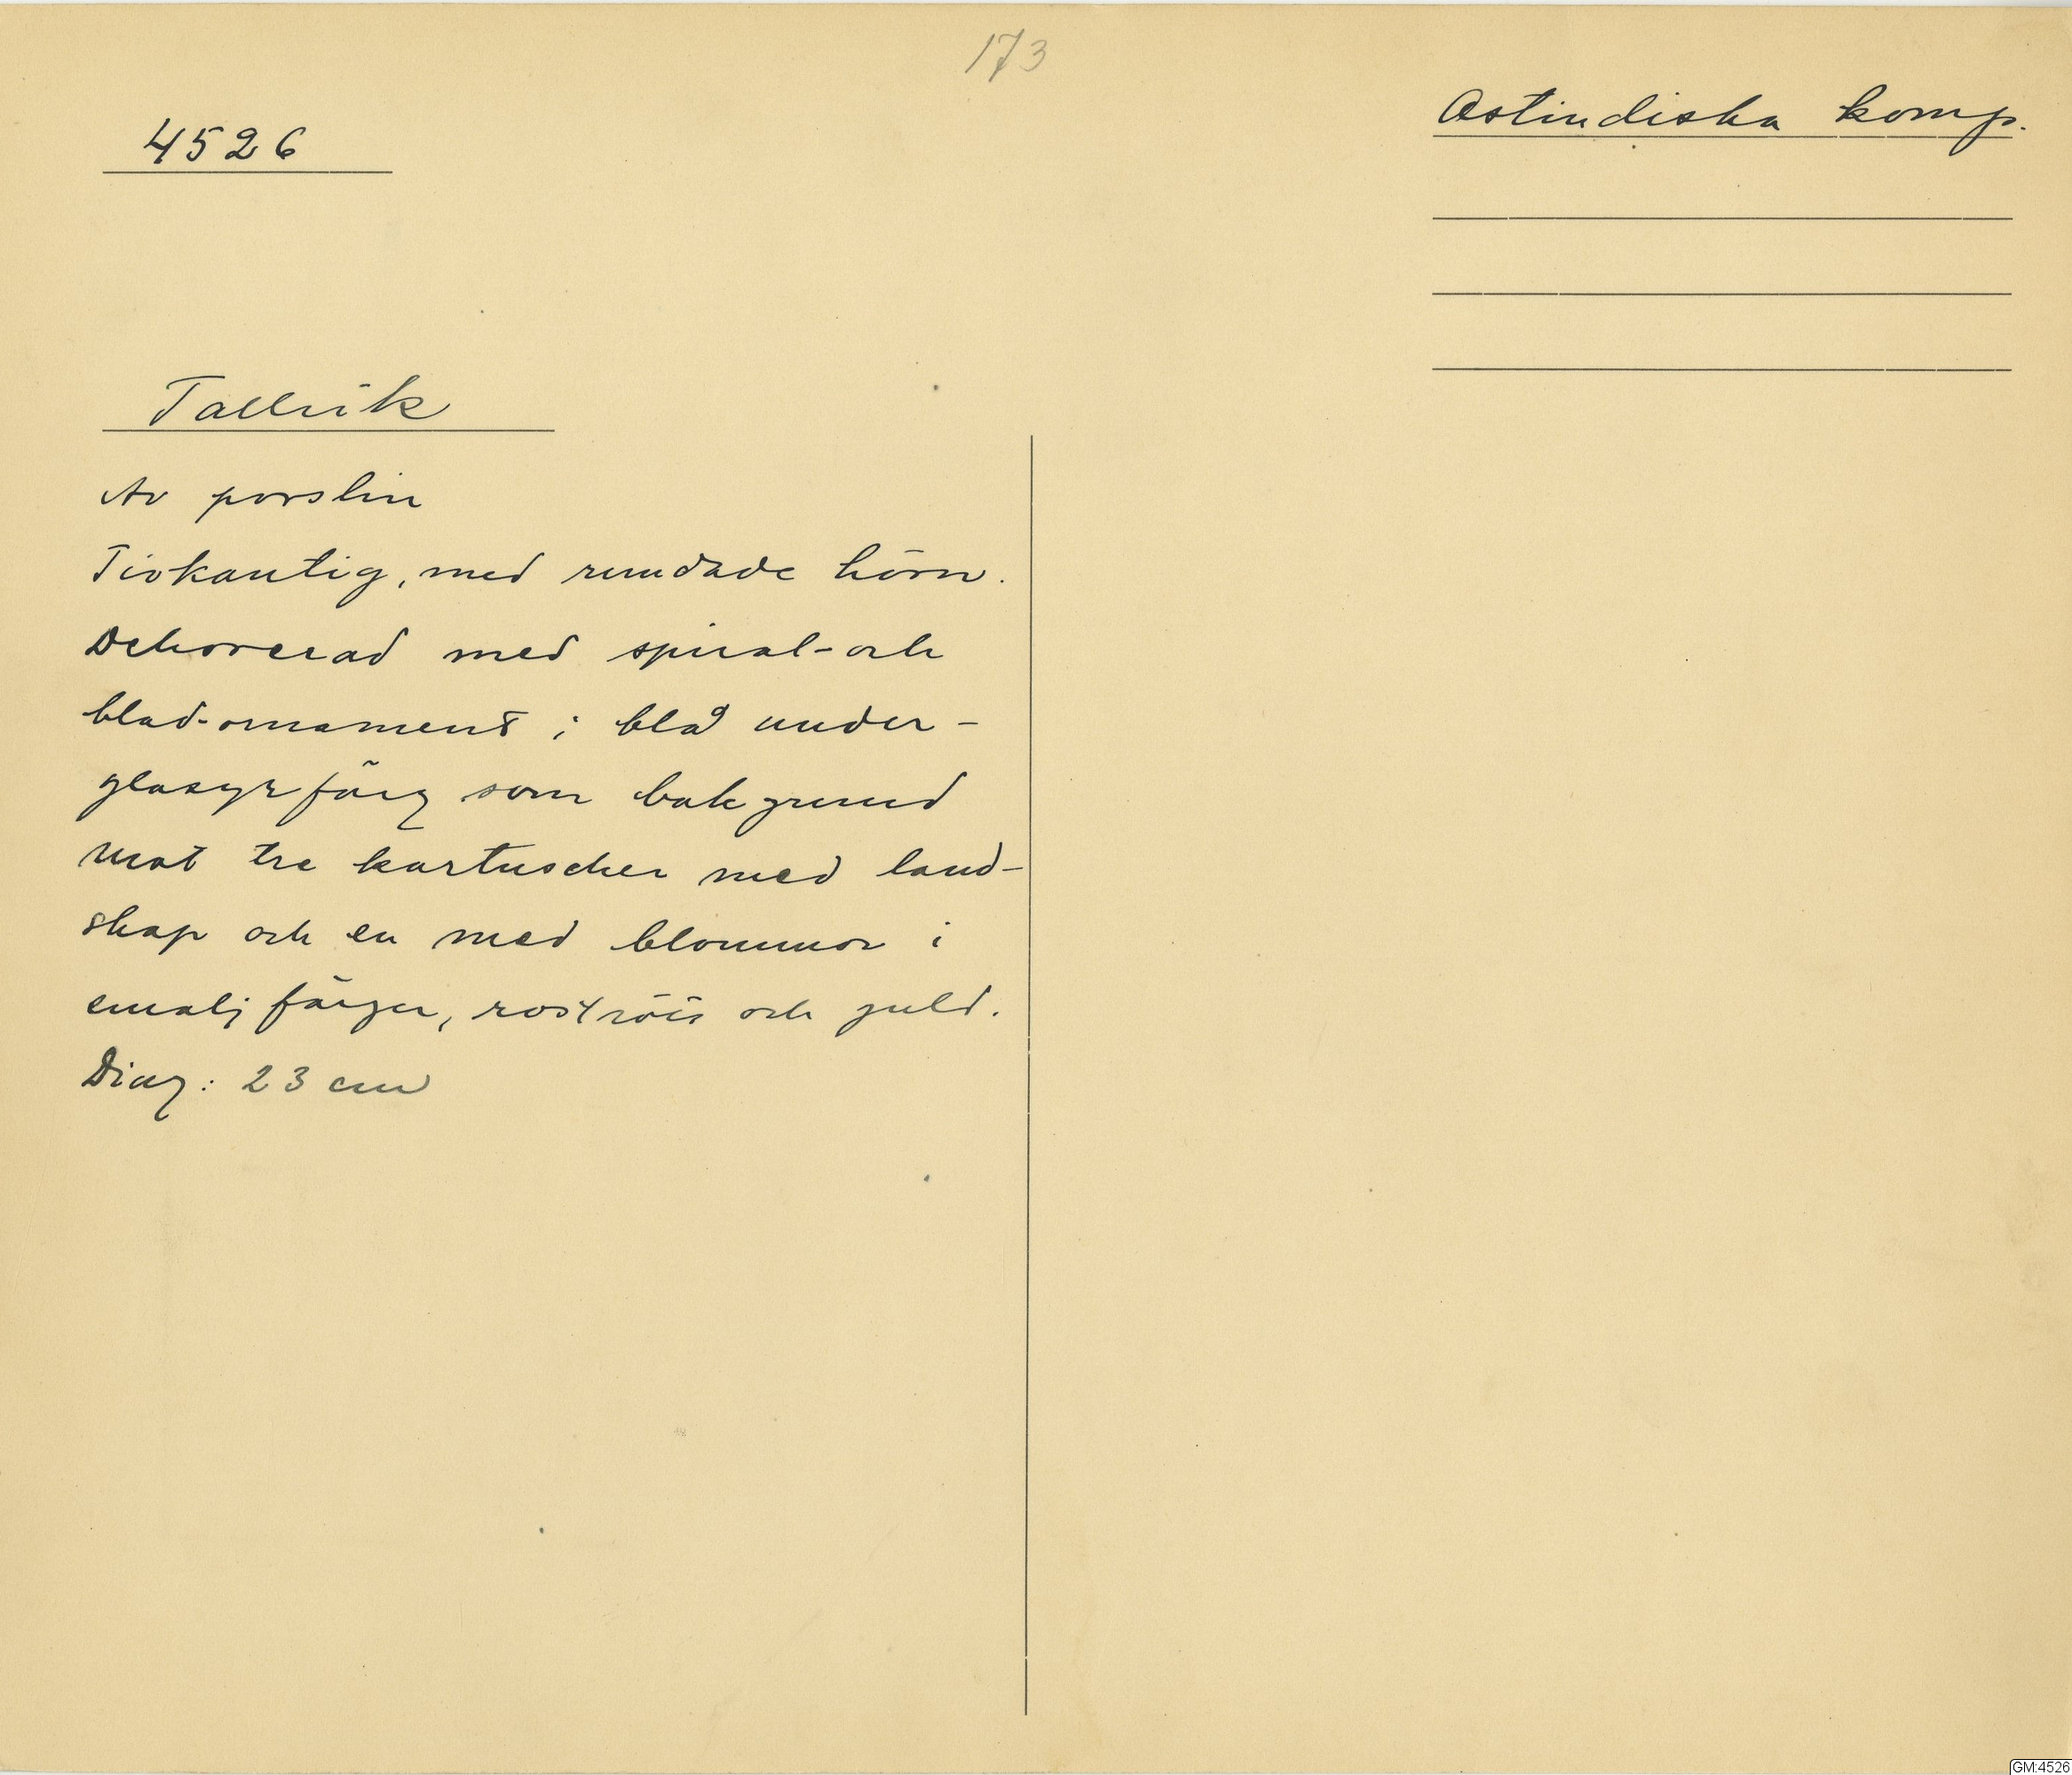 173
4526
Ostindiska komp.
Tallrik
Av porslin
Tiokantig, med rundade hörn.
Dekorerad med spiral- och
blad-ornament i blå under-
glasyrfärg som bakgrund
mot tre kartuscher med land-
skap och en med blommor i
emaljfärger, rostrött och guld.
Diag: 23 cm
GM:4526